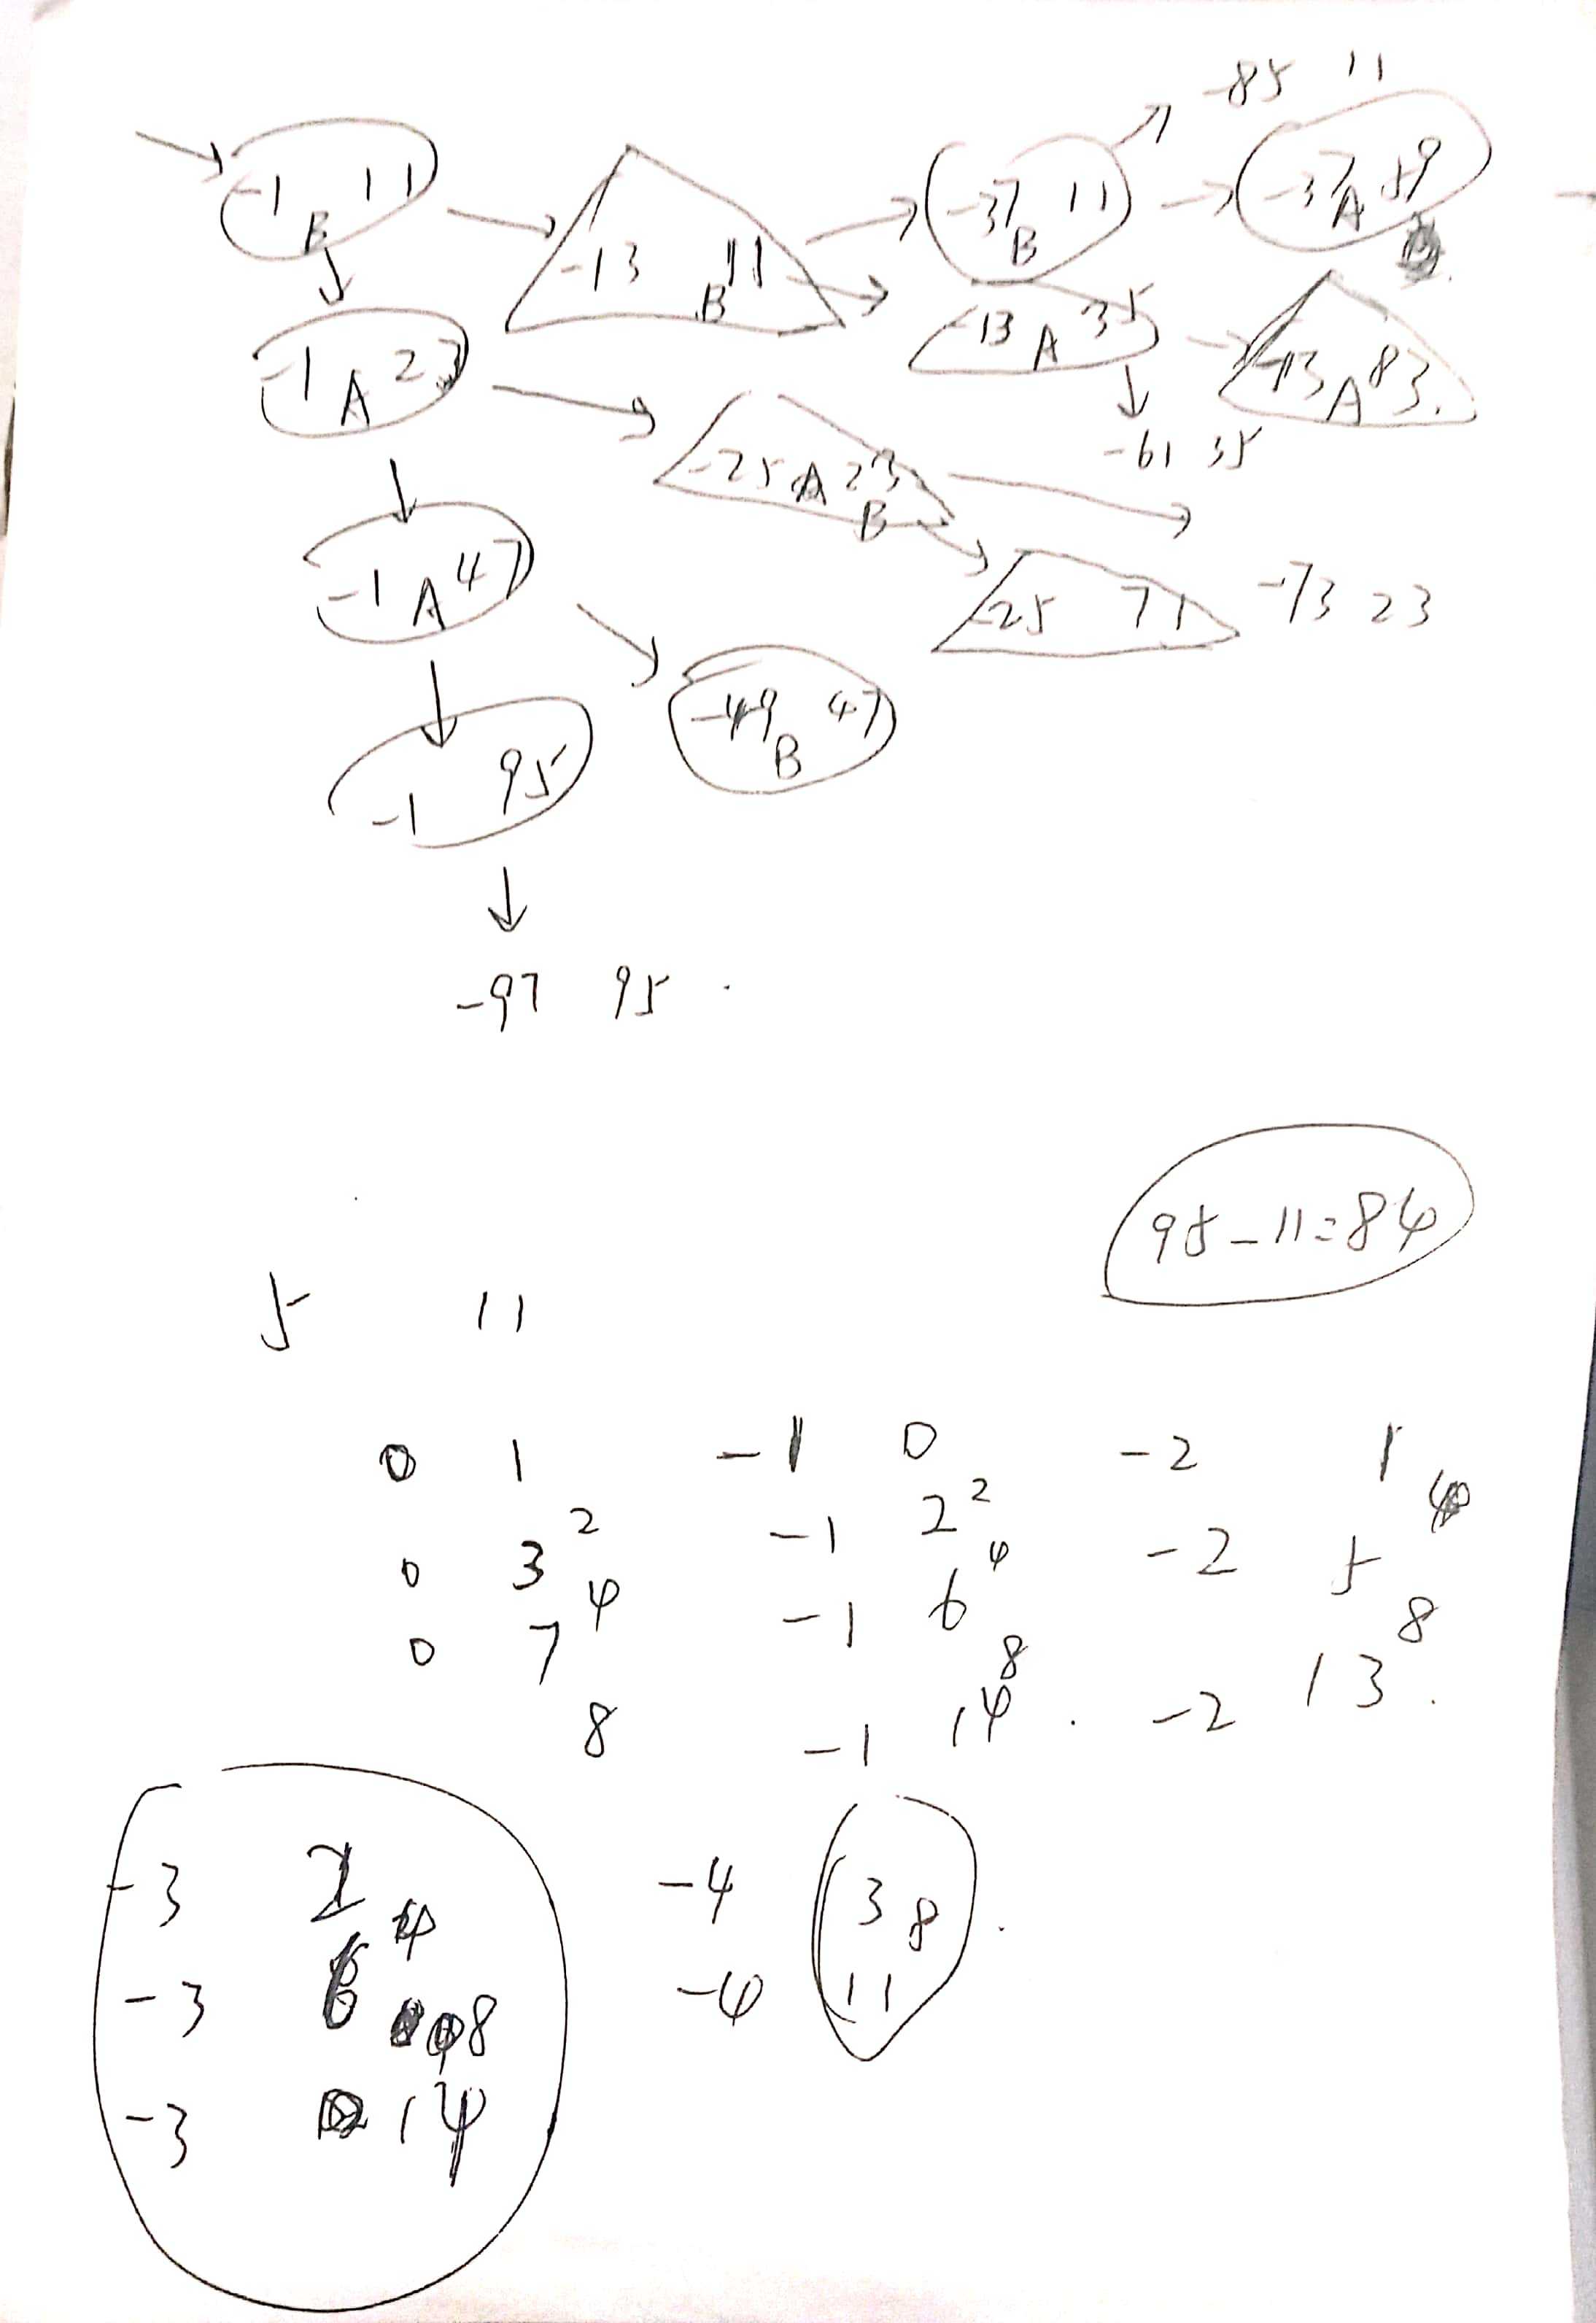 -85 11
-1 11
B
-13 11
B
-37 11
B
-37 59
A
-1 A 23
-13 A 35
-13 A 83.
-61 35
-25 A 23
B
-1 A 47
-25 71
-73 23
-49 47
B
-1 95
-97 95 .
95-11=84
5 11
0 1 -1 0 -2 1
2 2 4
0 3 -1 2 -2 5
4 4 8
0 7 -1 6 -2 13.
8 8
-1 14 .
-3 2 -4 3 8 .
4
-3 6 -4 11
8
-3 14